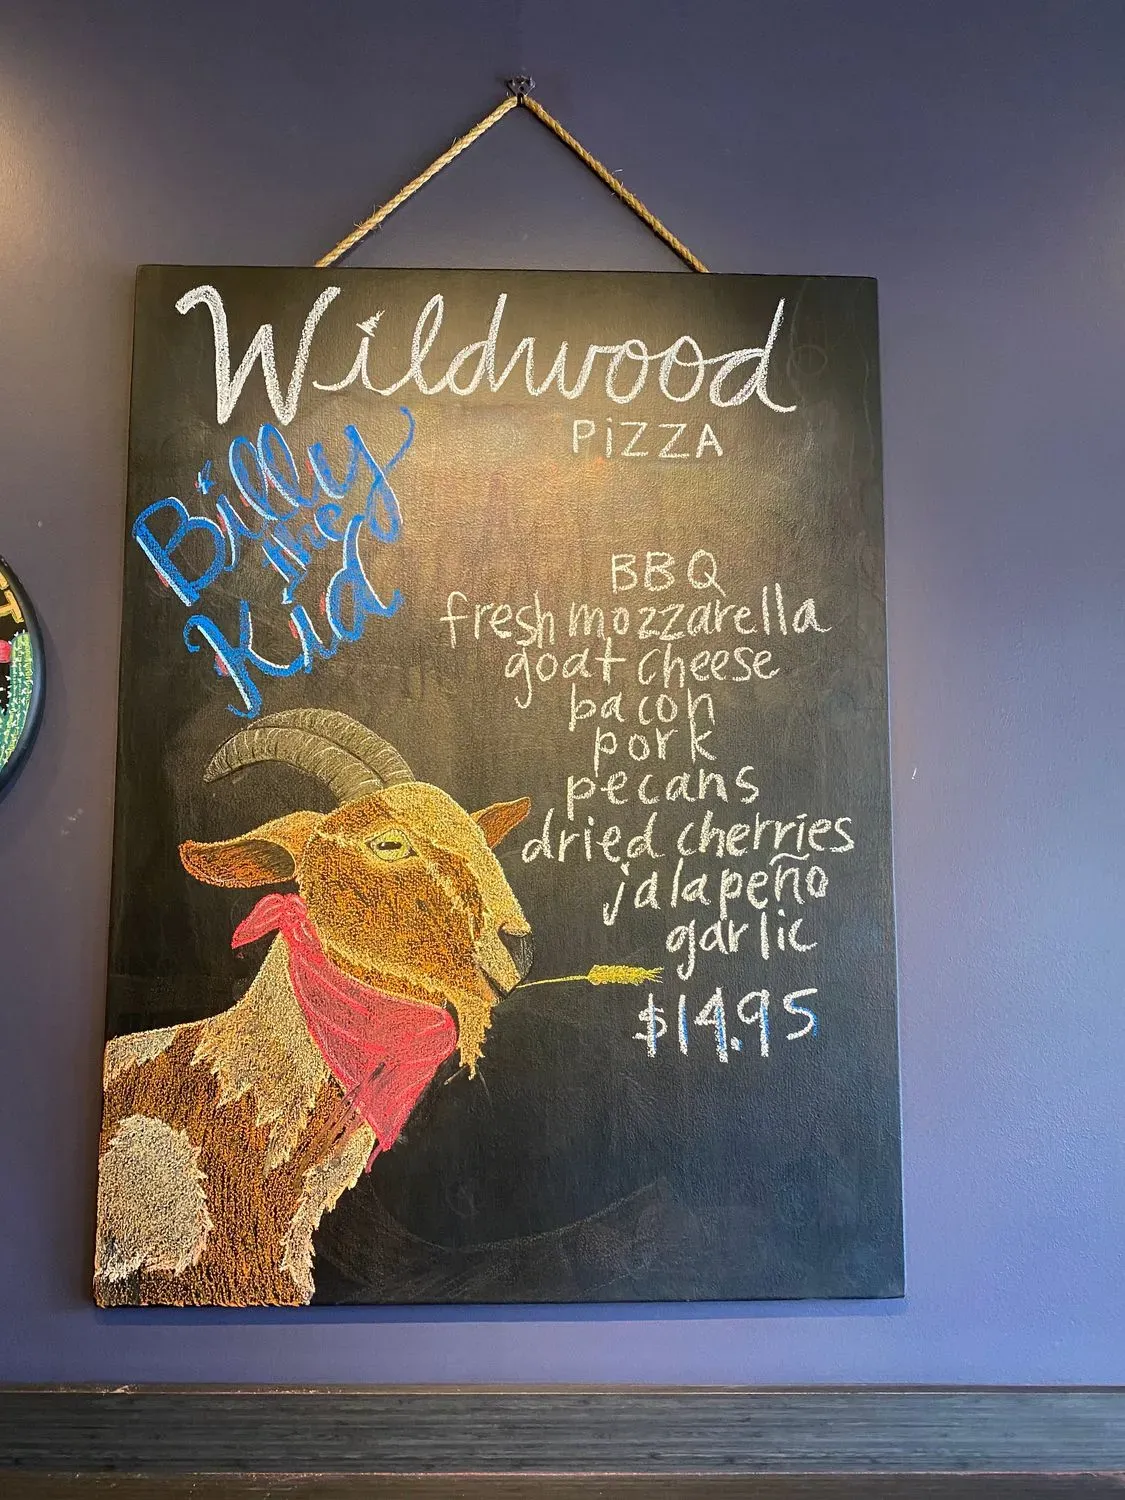 Wildwood
PiZZA
Billy
the
Kid
BBQ
fresh mozzarella
goat cheese
bacon
pork
pecans
dried cherries
jalapeño
garlic
$14.95